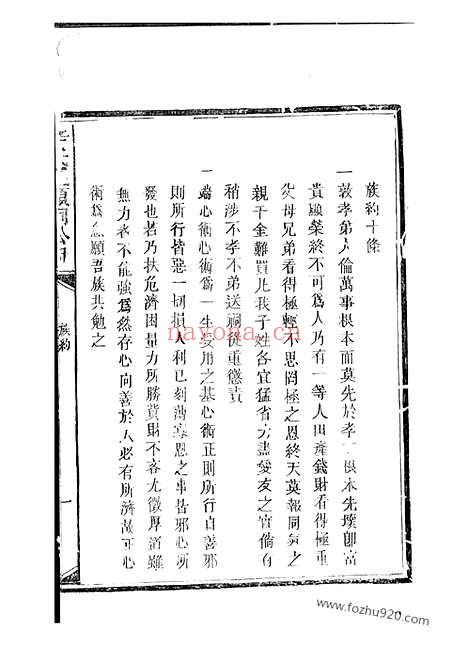 族約十條
一敦孝弟人倫萬事根本而莫先於孝 根本先壞卽富
貴顯榮終不可爲人乃有一等人田產錢財看得極重
父母兄弟看得極輕不思罔極之恩終天莫報同氣之
親千金難買凡我子姓各宜猛省力盡愛友之實倘有
稍涉不孝不弟送祠從重懲責
一端心術心術爲一生受用之基心術正則所行自善邪
則所行皆惡一切損人利己刻薄寡恩之事皆邪心所
發也若乃扶危濟困量力所勝貲財不吝尤徵厚道雖
無力者不能强爲然存心向善於人必有所濟哉平心
術爲急願吾族共勉之
族約
一
nayona.cn
www.fozhu920.com